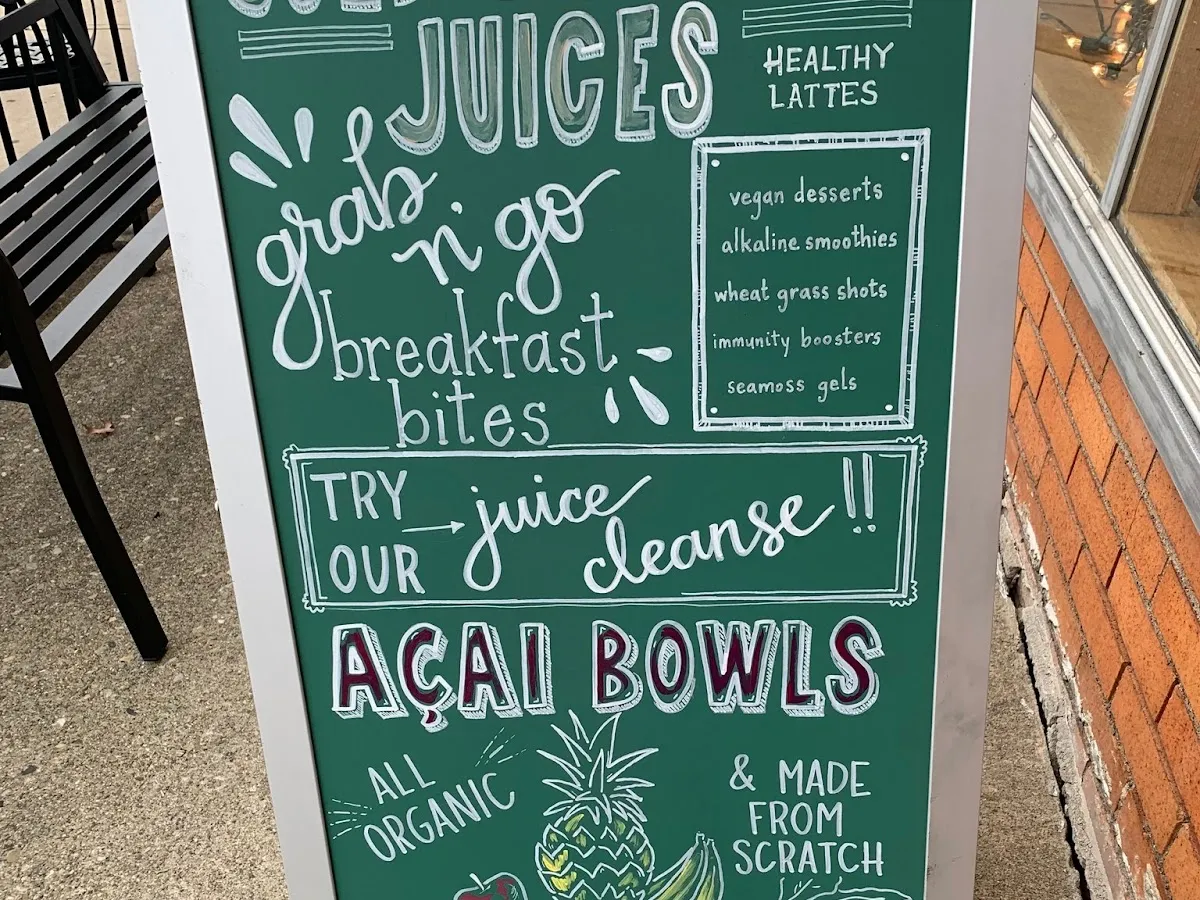 JUICES
HEALTHY
LATTES
grab
n' go
breakfast
bites
vegan desserts
alkaline smoothies
wheat grass shots
immunity boosters
seamoss gels
TRY
OUR
juice
cleanse!!
AÇAI BOWLS
ALL
ORGANIC
& MADE
FROM
SCRATCH